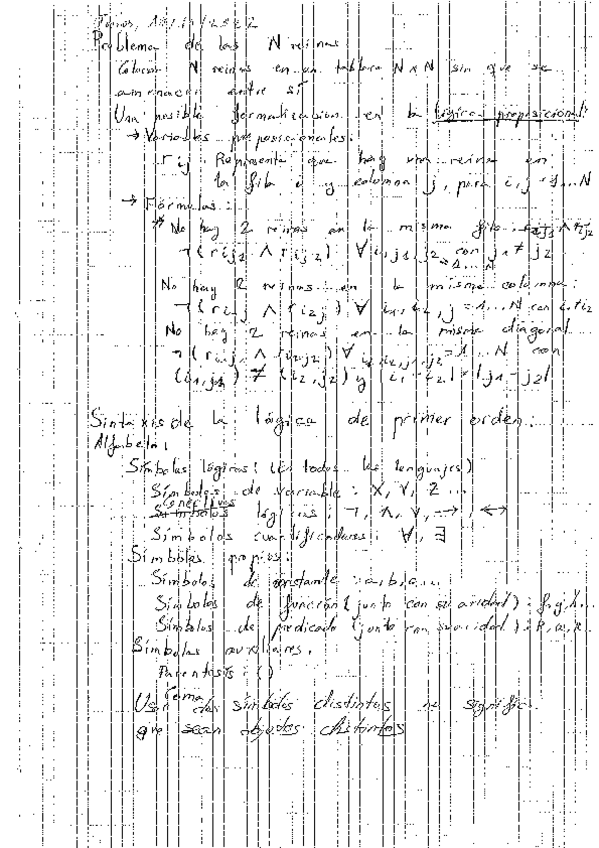 Problema de las N reinas
Colocar N reinas en un tablero N x N sin que se
amenacen entre sí
Una posible formalización en la lógica proposicional:
→ Variables proposicionales:
rij. Representa que hay una reina en
la fila i y columna j, para i, j = 1...N
→ Fórmulas:
No hay 2 reinas en la misma fila
¬(rij1 ∧ rij2) ∀ i, j1, j2 = 1...N con j1 ≠ j2
No hay 2 reinas en la misma columna:
¬(ri1j ∧ ri2j) ∀ i1, i2, j = 1...N con i1 ≠ i2
No hay 2 reinas en la misma diagonal
¬(ri1j1 ∧ ri2j2) ∀ i1, i2, j1, j2 = 1...N con
(i1, j1) ≠ (i2, j2) y |i1 - i2| = |j1 - j2|
Sintaxis de la lógica de primer orden:
Alfabeto:
Símbolos lógicos: (en todos los lenguajes)
Símbolos de variable: X, Y, Z...
Conectivos lógicas: ¬, ∧, ∨, →, ↔
Símbolos cuantificadores: ∀, ∃
Símbolos propios:
Símbolos de constante: a, b, c...
Símbolos de función (junto con su aridad): f, g, h...
Símbolos de predicado (junto con su aridad): P, Q, R
Símbolos auxiliares.
Parentesis: ()
Usar dos símbolos distintos no significa
que sean objetos distintos